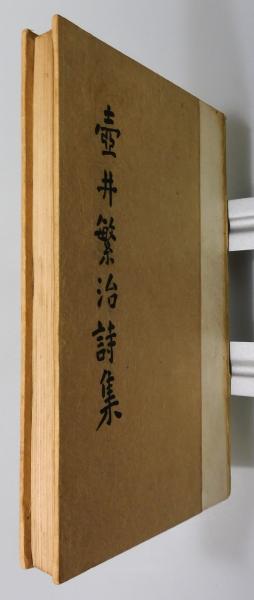 壺井繁治詩集